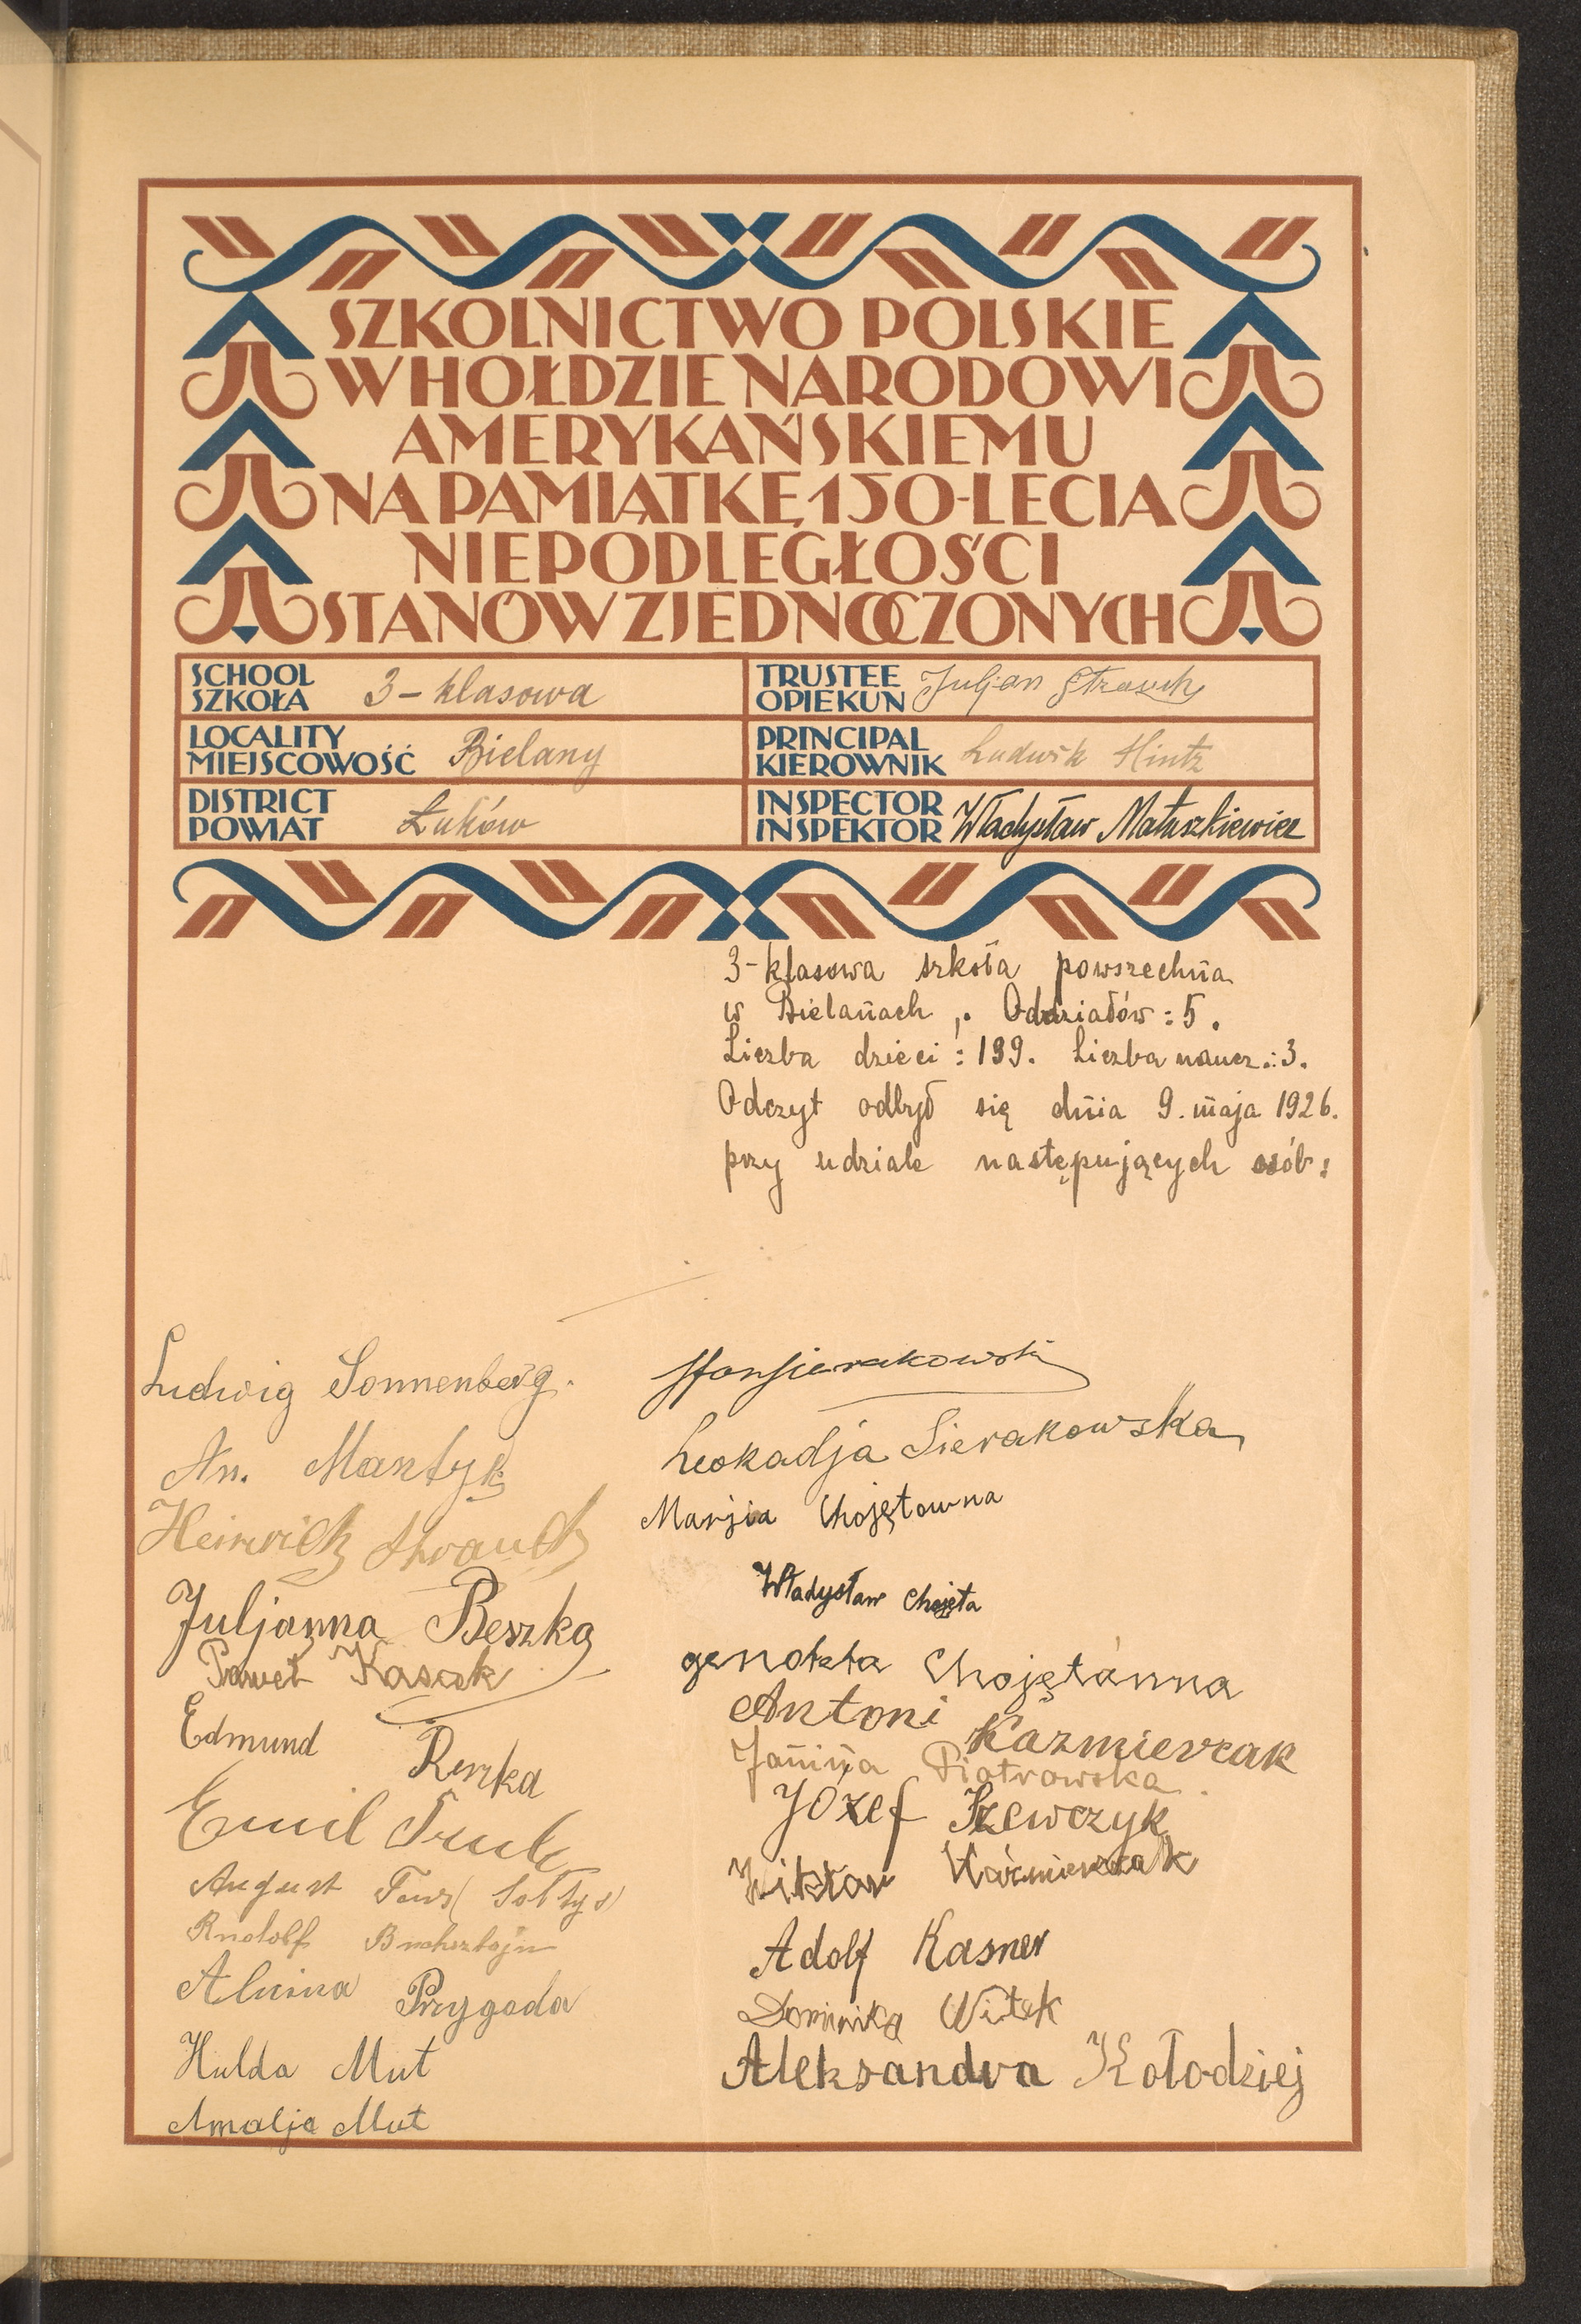 SZKOLNICTWO POLSKIE
W HOŁDZIE NARODOWI
AMERYKAŃSKIEMU
NA PAMIĄTKĘ 150-LECIA
NIEPODLEGŁOŚCI
STANÓW ZJEDNOCZONYCH
SCHOOL
SZKOŁA 3-klasowa
TRUSTEE
OPIEKUN Juljan Strauch
LOCALITY
MIEJSCOWOŚĆ Bielany
PRINCIPAL
KIEROWNIK Ludwik Hintz
DISTRICT
POWIAT Łuków
INSPECTOR
INSPEKTOR Władysław Matuszkiewicz
3-klasowa szkoła powszechna
w Bielanach,. Oddziałów: 5.
Liczba dzieci: 139. Liczba naucz.: 3.
Odczyt odbył się dnia 9. maja 1926.
przy udziale następujących osób:
Ludwig Sonnenberg.
An. Mantyk
Heinrich Strauch
Juljanna Beszka
Paweł Kasczk
Edmund Reszka
Emil
August (Sołtys)
Rudolf
Alwina Przygoda
Hulda Mut
Amalja Mut
Stan Sierakowski
Leokadja Sierakowska
Marjia Chojętowna
Władysław Chojęta
genofefa Chojętanna
Antoni Kazmierzak
Janina Piotrowska
Józef Szewczyk
Wiktor Kaźmierczak
Adolf Kasner
Dominika Witek
Aleksandra Kołodziej